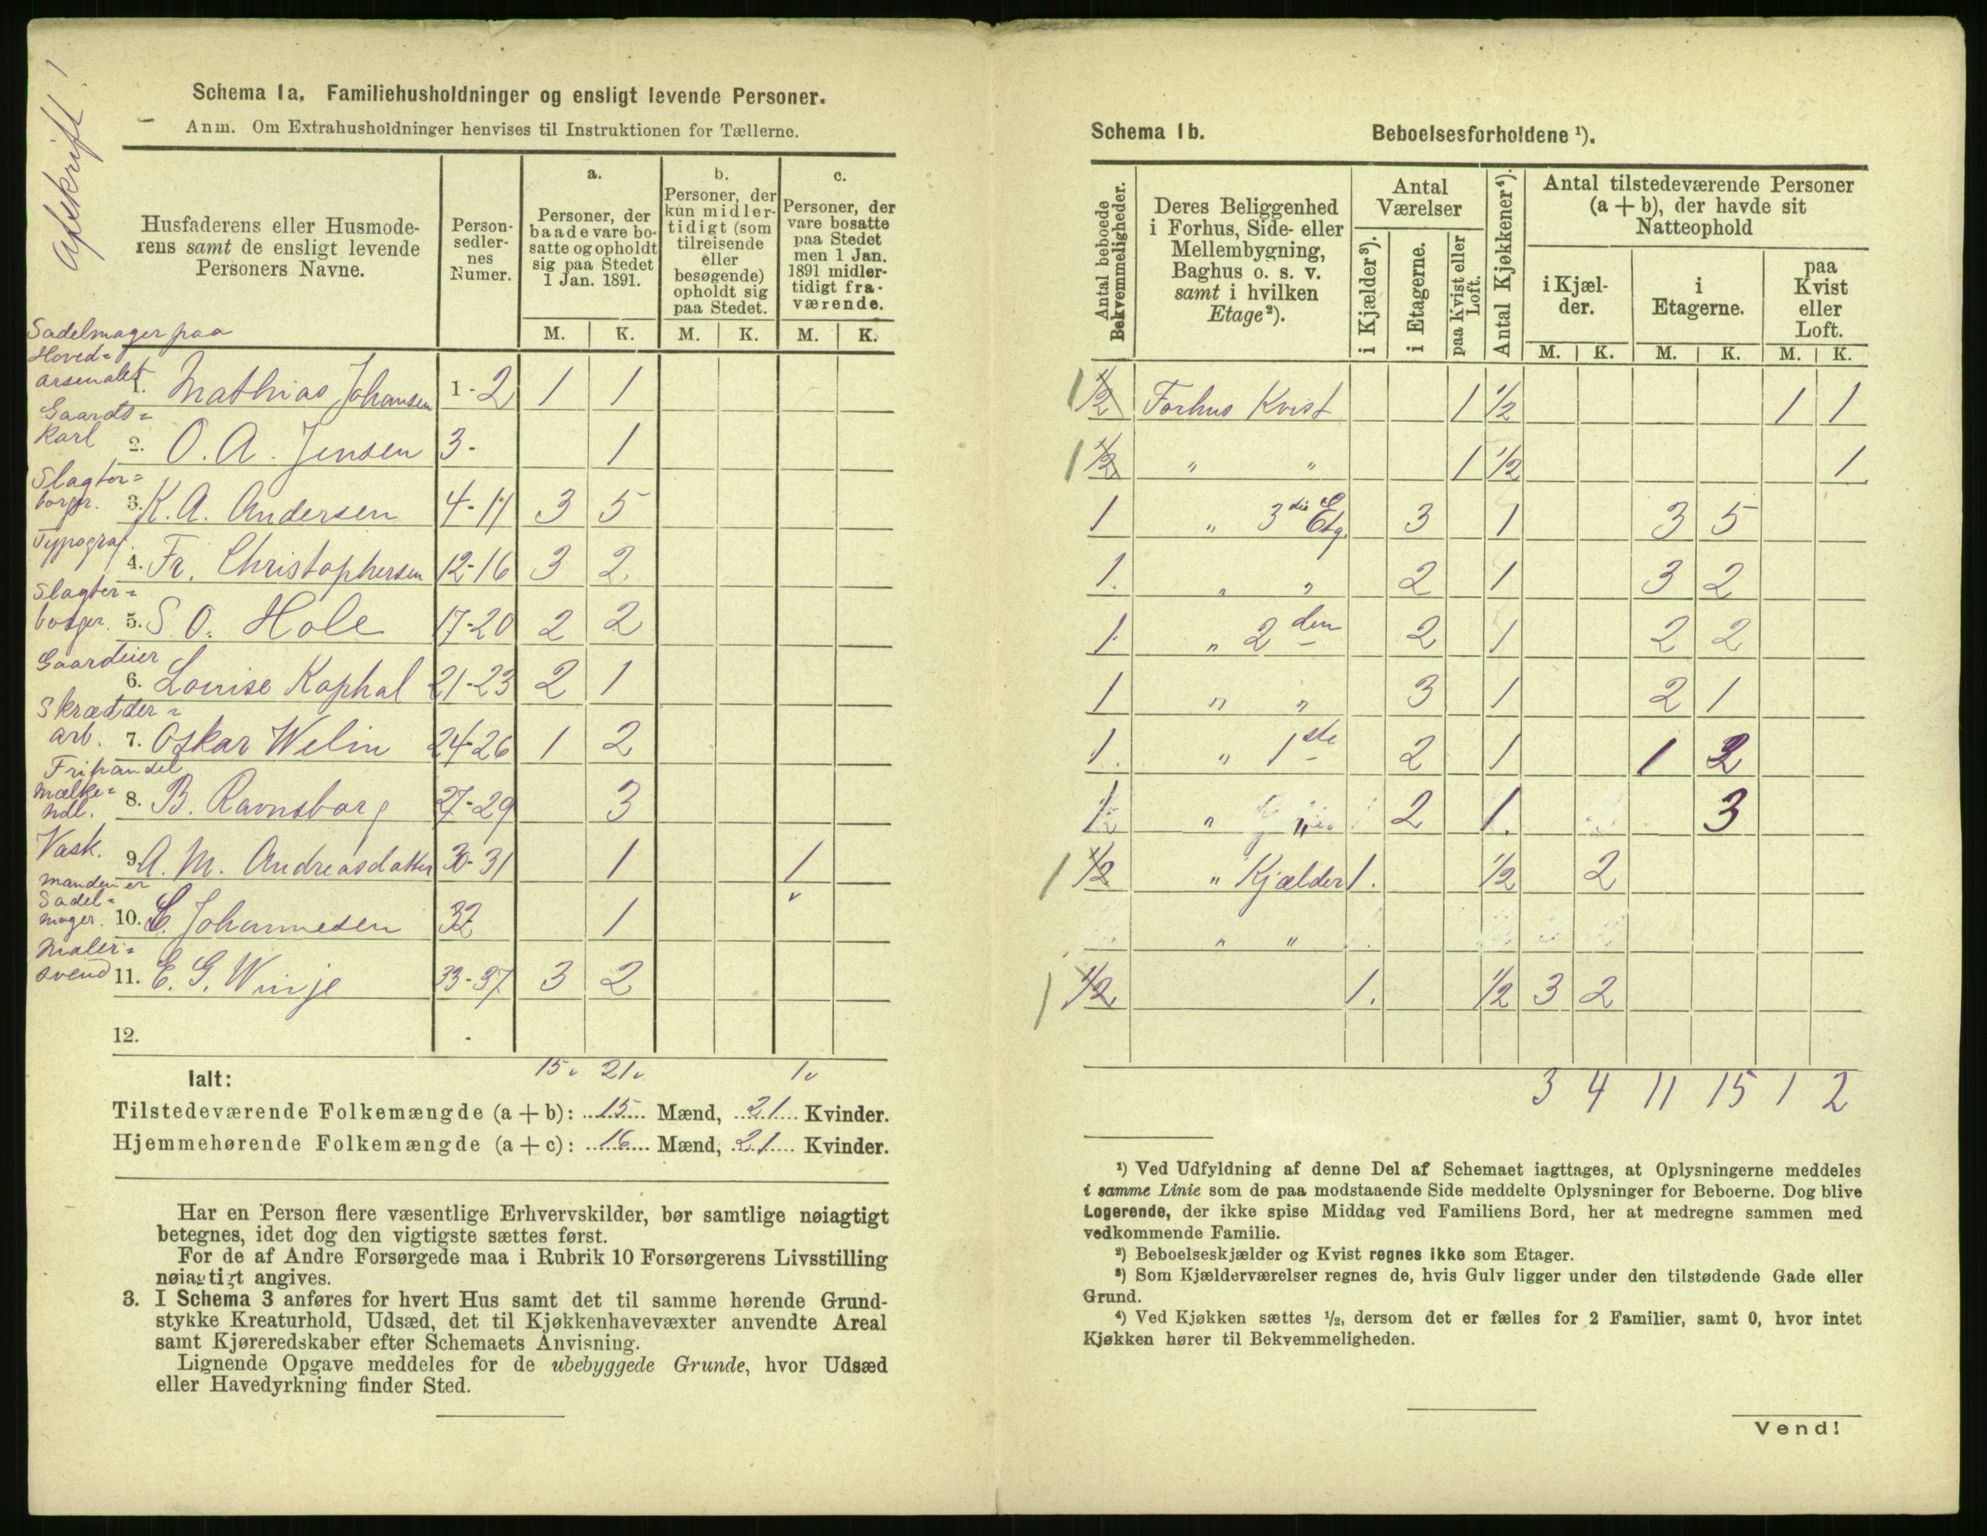 afskrift!
Schema 1a. Familiehusholdninger og ensligt levende Personer.
Anm. Om Extrahusholdninger henvises til Instruktionen for Tællerne.
Husfaderens eller Husmode-
rens samt de ensligt levende
Personers Navne.
Person-
sedler-
nes
Numer.
a.
Personer, der
baade vare bo-
satte og opholdt
sig paa Stedet
1 Jan. 1891.
b.
Personer, der
kun midler-
tidigt (som
tilreisende
eller
besøgende)
opholdt sig
paa Stedet.
c.
Personer, der
vare bosatte
paa Stedet
men 1 Jan.
1891 midler-
tidigt fra-
værende.
M. K. M. K. M. K.
Sadelmager paa
Hoved=
arsenalet
1. Mathias Johansen 1-2 1 1
Gaards=
Karl
2. O. A. Jensen 3- 1
Slagter=
borger.
3. K. A. Andersen 4-11 3 5
Typograf.
4. Fr. Christophersen 12-16 3 2
Slagter=
borger.
5. S. O. Hole 17-20 2 2
Gaardeier
6. Louise Kaphal 21-23 2 1
Skrædder=
arb.
7. Oskar Welin 24-26 1 2
Frihandel
Mælke=
hdl.
8. B. Ravnsborg 27-29 3
Vask.
9. A. M. Andreasdatter 30-31 1 1
Manden er
Sadel=
mager.
10. C. Johannesen 32 1
Maler=
svend
11. E. G. Winje 33-37 3 2
12.
Ialt: 15 21 1
Tilstedeværende Folkemængde (a + b): 15 Mænd, 21 Kvinder.
Hjemmehørende Folkemængde (a + c): 16 Mænd, 21 Kvinder.
Har en Person flere væsentlige Erhvervskilder, bør samtlige nøiagtigt
betegnes, idet dog den vigtigste sættes først.
For de af Andre Forsørgede maa i Rubrik 10 Forsørgerens Livsstilling
nøiagtigt angives.
3. I Schema 3 anføres for hvert Hus samt det til samme hørende Grund-
stykke Kreaturhold, Udsæd, det til Kjøkkenhavevæxter anvendte Areal
samt Kjøreredskaber efter Schemaets Anvisning.
Lignende Opgave meddeles for de ubebyggede Grunde, hvor Udsæd
eller Havedyrkning finder Sted.
Schema 1b. Beboelsesforholdene ¹).
Antal beboede
Bekvemmeligheder.
Deres Beliggenhed
i Forhus, Side- eller
Mellembygning,
Baghus o. s. v.
samt i hvilken
Etage²).
Antal
Værelser
i Kjælder³).
i Etagerne.
paa Kvist eller
Loft.
Antal Kjøkkener⁴).
Antal tilstedeværende Personer
(a + b), der havde sit
Natteophold
i Kjæl-
der.
i
Etagerne.
paa
Kvist
eller
Loft.
M. K. M. K. M. K.
1 1/2 Forhus Kvist 1 1/2 1 1
1 1/2 " " 1 1/2 1
1 " 3die Etg 3 1 3 5
1. " " 2 1 3 2
1. " 2den 2 1 2 2
1 " " 3 1 2 1
1. " 1ste 2 1 1 2
1 " " 2 1. 3
1 1/2 " Kjælder 1. 1/2 2
" "
1 1/2 1. 1/2 3 2
3 4 11 15 1 2
¹) Ved Udfyldning af denne Del af Schemaet iagttages, at Oplysningerne meddeles
i samme Linie som de paa modstaaende Side meddelte Oplysninger for Beboerne. Dog blive
Logerende, der ikke spise Middag ved Familiens Bord, her at medregne sammen med
vedkommende Familie.
²) Beboelseskjælder og Kvist regnes ikke som Etager.
³) Som Kjælderværelser regnes de, hvis Gulv ligger under den tilstødende Gade eller
Grund.
⁴) Ved Kjøkken sættes ½, dersom det er fælles for 2 Familier, samt 0, hvor intet
Kjøkken hører til Bekvemmeligheden.
Vend!